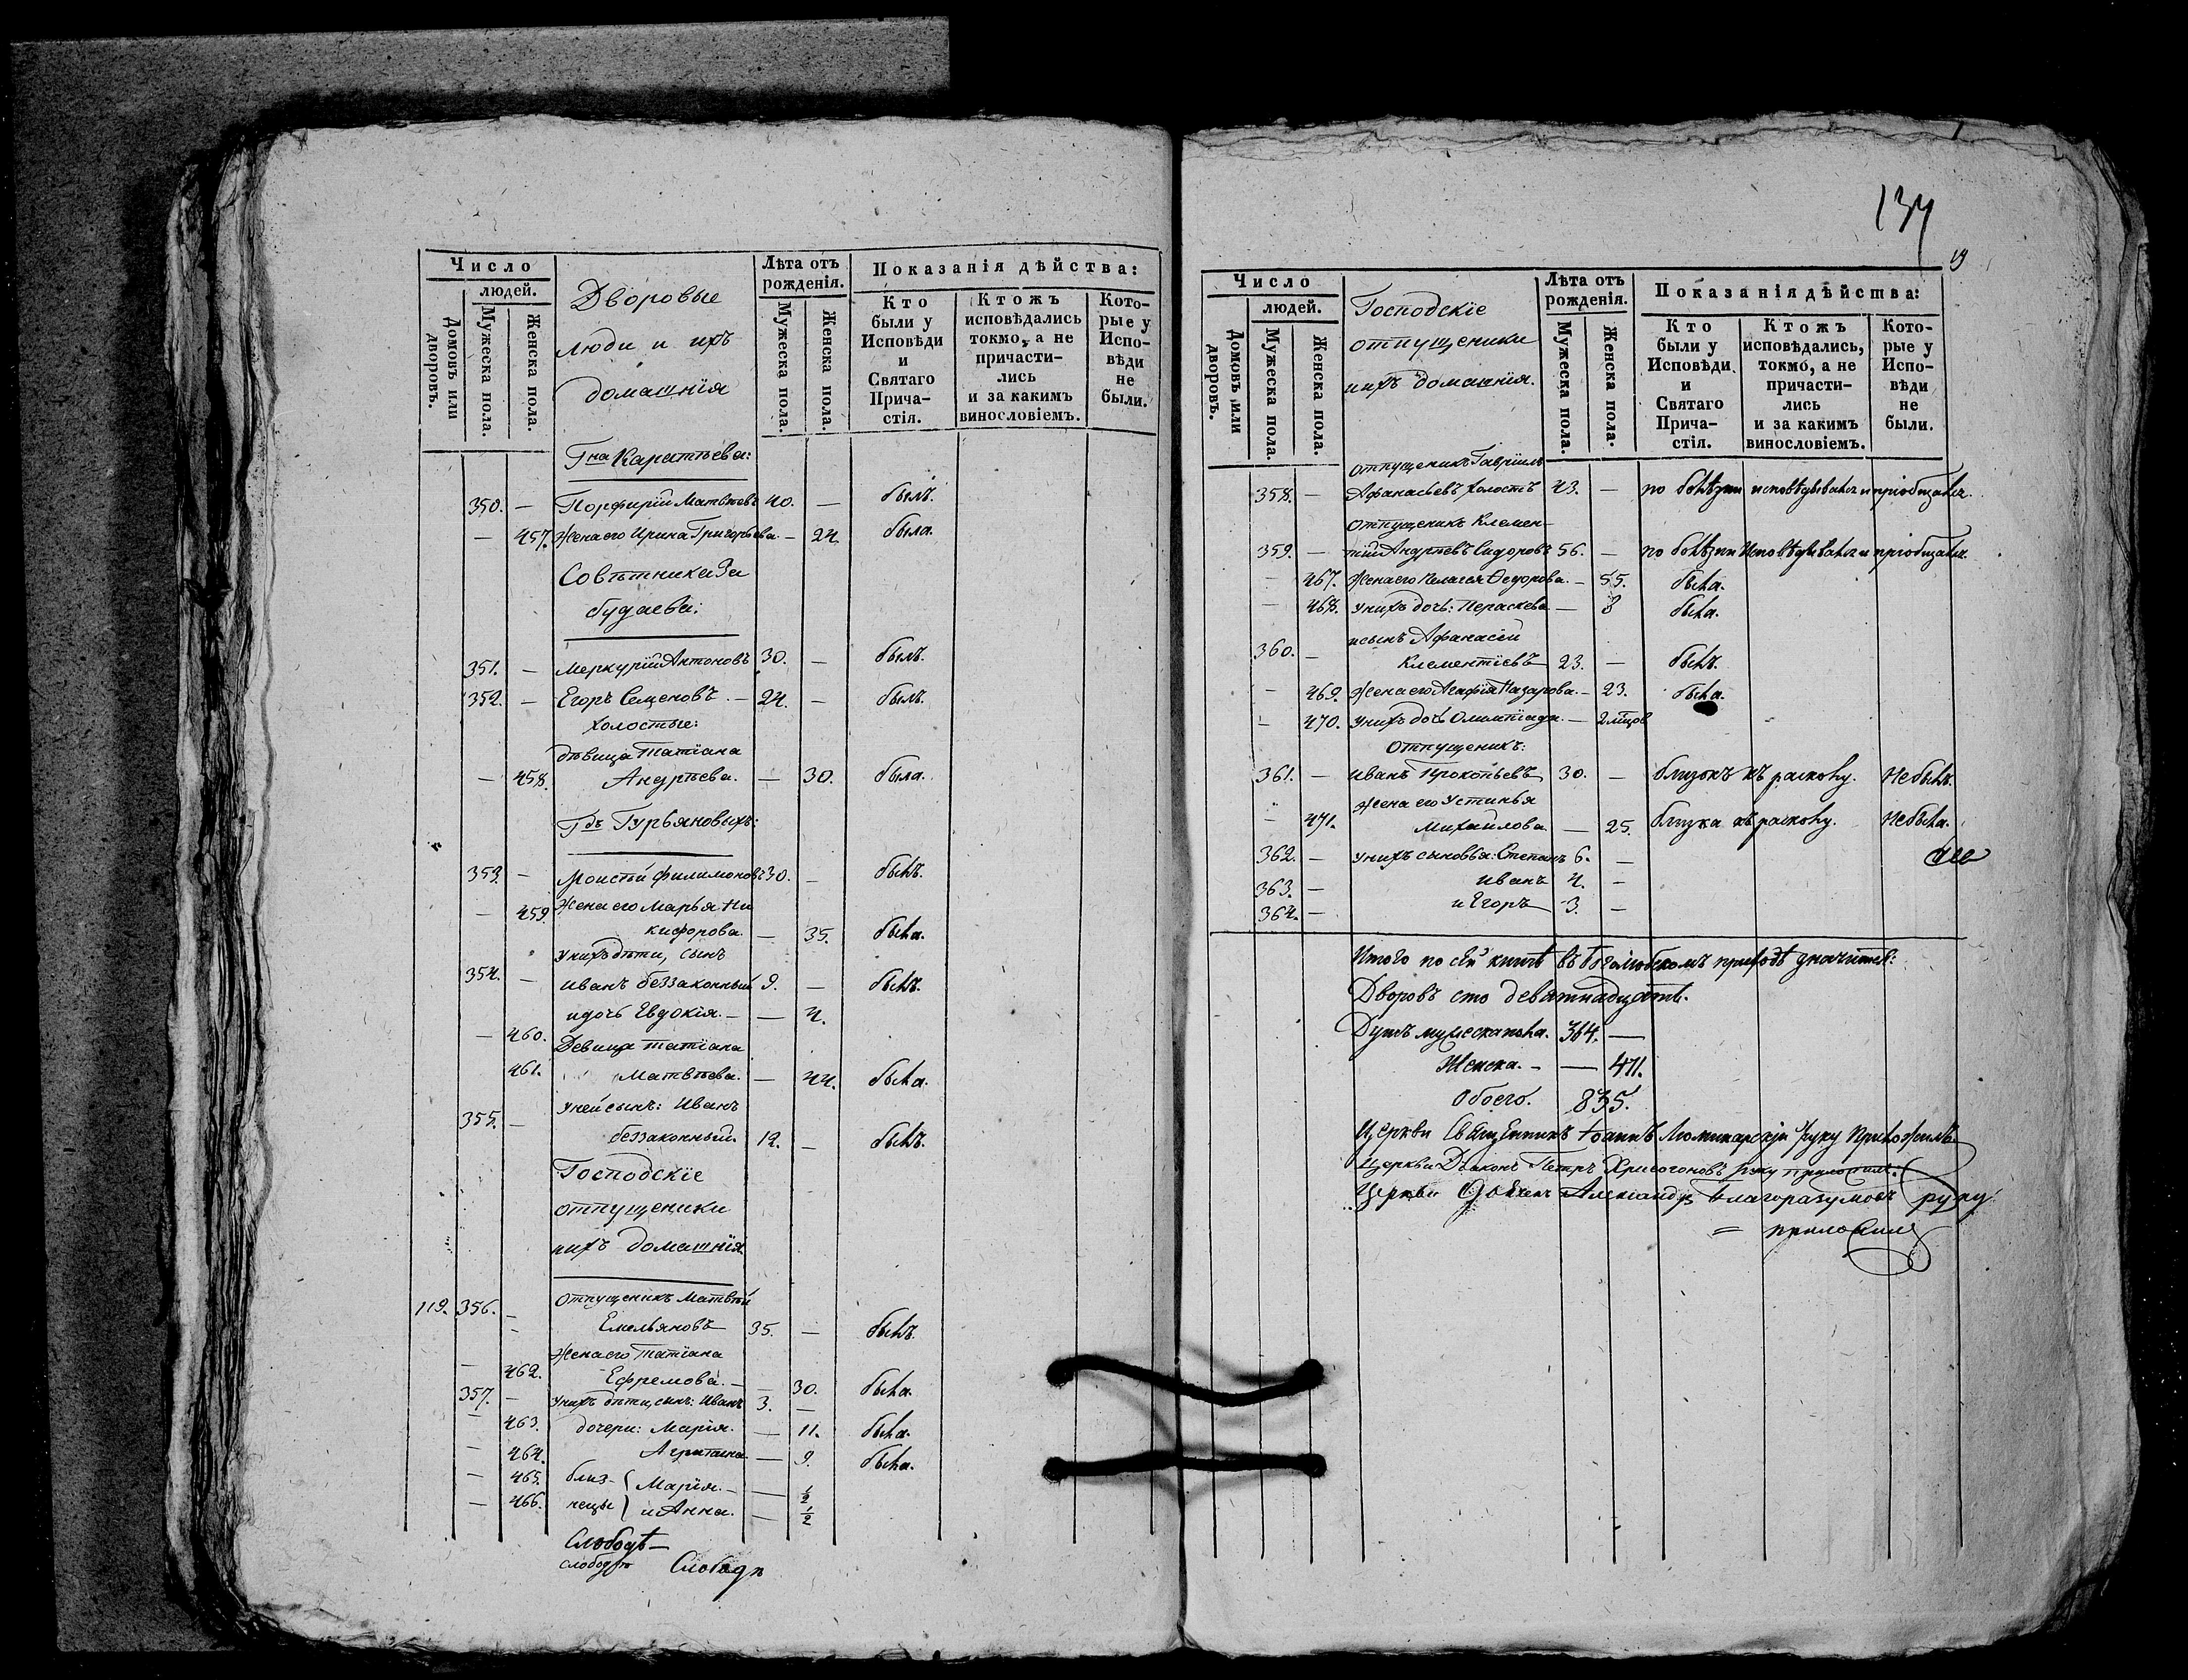 Число
людей.
Домовъ или дворовъ.
Мужеска пола.
Женска пола.
Дворовые
люди и ихъ
домашнія
Лѣта отъ
рожденія.
Мужеска пола.
Женска пола.
Показанія дѣйства:
Кто
были у
Исповѣди
и
Святаго
Прича-
стія.
Ктожъ
исповѣдались
токмо, а не
причасти-
лись
и за какимъ
винословіемъ.
Кото-
рые у
Испо-
вѣди
не
были.
Гна Каратѣева:
350. — Порфирій Матвѣевъ 40. — былъ.
— 457. Жена его Ирина Григорьева. — 24. была.
Совѣтника За
будаева:
351. — Меркурій Антоновъ 30. — былъ.
352. — Егоръ Семеновъ. — 24. — былъ.
холостые:
дѣвица Татіана
— 458. Андрѣева. — 30. была.
Гдъ Гурьяновыхъ:
353. — Моисѣй Филимоновъ 30. — былъ.
— 459. Жена его Марья Ни
кифорова. — 35. была.
У нихъ дѣти, сынъ
354. — Иванъ беззаконный 9. — былъ.
и дочь Евдокія. — — 4.
— 460. Девица Татіана
461. Матвѣева. — 44. была.
У ней сынъ: Иванъ
355. — беззаконный. 12. — былъ.
Господскіе
отпущеники
и ихъ домашнія
119. 356. — Отпущеникъ Матвѣй
Емельяновъ 35. — былъ.
Жена его Татіана
— 462. Ефремова. — 30. была.
357. — У нихъ дѣти, сынъ: Иванъ 3. —
— 463. дочери: Марія. — 11. была.
— 464. Агрипина. — 9. была.
— 465. близ- { Марія. — 1/2
— 466. нецы } и Анна. — 1/2
Слободѣ —
слободѣ Слободѣ
134
19
Число
людей.
Домовъ или дворовъ.
Мужеска пола.
Женска пола.
Господскіе
отпущеники
и ихъ домашнія.
Лѣта отъ
рожденія.
Мужеска пола.
Женска пола.
Показанія дѣйства:
Кто
были у
Исповѣди
и
Святаго
Прича-
стія.
Ктожъ
исповѣдались,
токмо, а не
причасти-
лись
и за какимъ
винословіемъ.
Кото-
рые у
Испо-
вѣди
не
были.
Отпущеникъ Гавріилъ
358. — Афанасьевъ холостъ 43. — по болѣзни исповѣдыванъ и пріобщанъ.
Отпущеникъ Клемен-
359. — тій Андрѣевъ Сидоровъ 56. — по болѣзни исповѣдыванъ и пріобщанъ.
— 467. Жена его Пелагея Ѳедорова. — 55. была.
— 468. У нихъ дочь: Параскева — 8 была.
и сынъ Афанасій
360. — Клементіевъ 23. — былъ.
— 469. Жена его Агафія Назарова. — 23. была.
— 470. У нихъ дочь Олимпіада. — 2 мѣцов
Отпущеникъ:
361. — Иванъ Прокопьевъ 30. — близокъ къ расколу. Не былъ.
Жена его Устинья
— 471. Михаилова. — 25. близка къ расколу. Не была.
362. — У нихъ сыновья: Степанъ 6. —
363. — Иванъ 4. —
364. — и Егоръ 3. —
Итого по сей книгѣ въ приходѣ значится:
Дворовъ сто девятнадцать.
Душъ мужеска пола. 364. —
Женска. — — 471.
Обоего. 835.
Церкви Священникъ Іоаннъ руку приложилъ
Церкви Діаконъ Петръ Хрисогоновъ руку приложилъ.
Церкви Александръ Благоразумовъ руку
= приложилъ